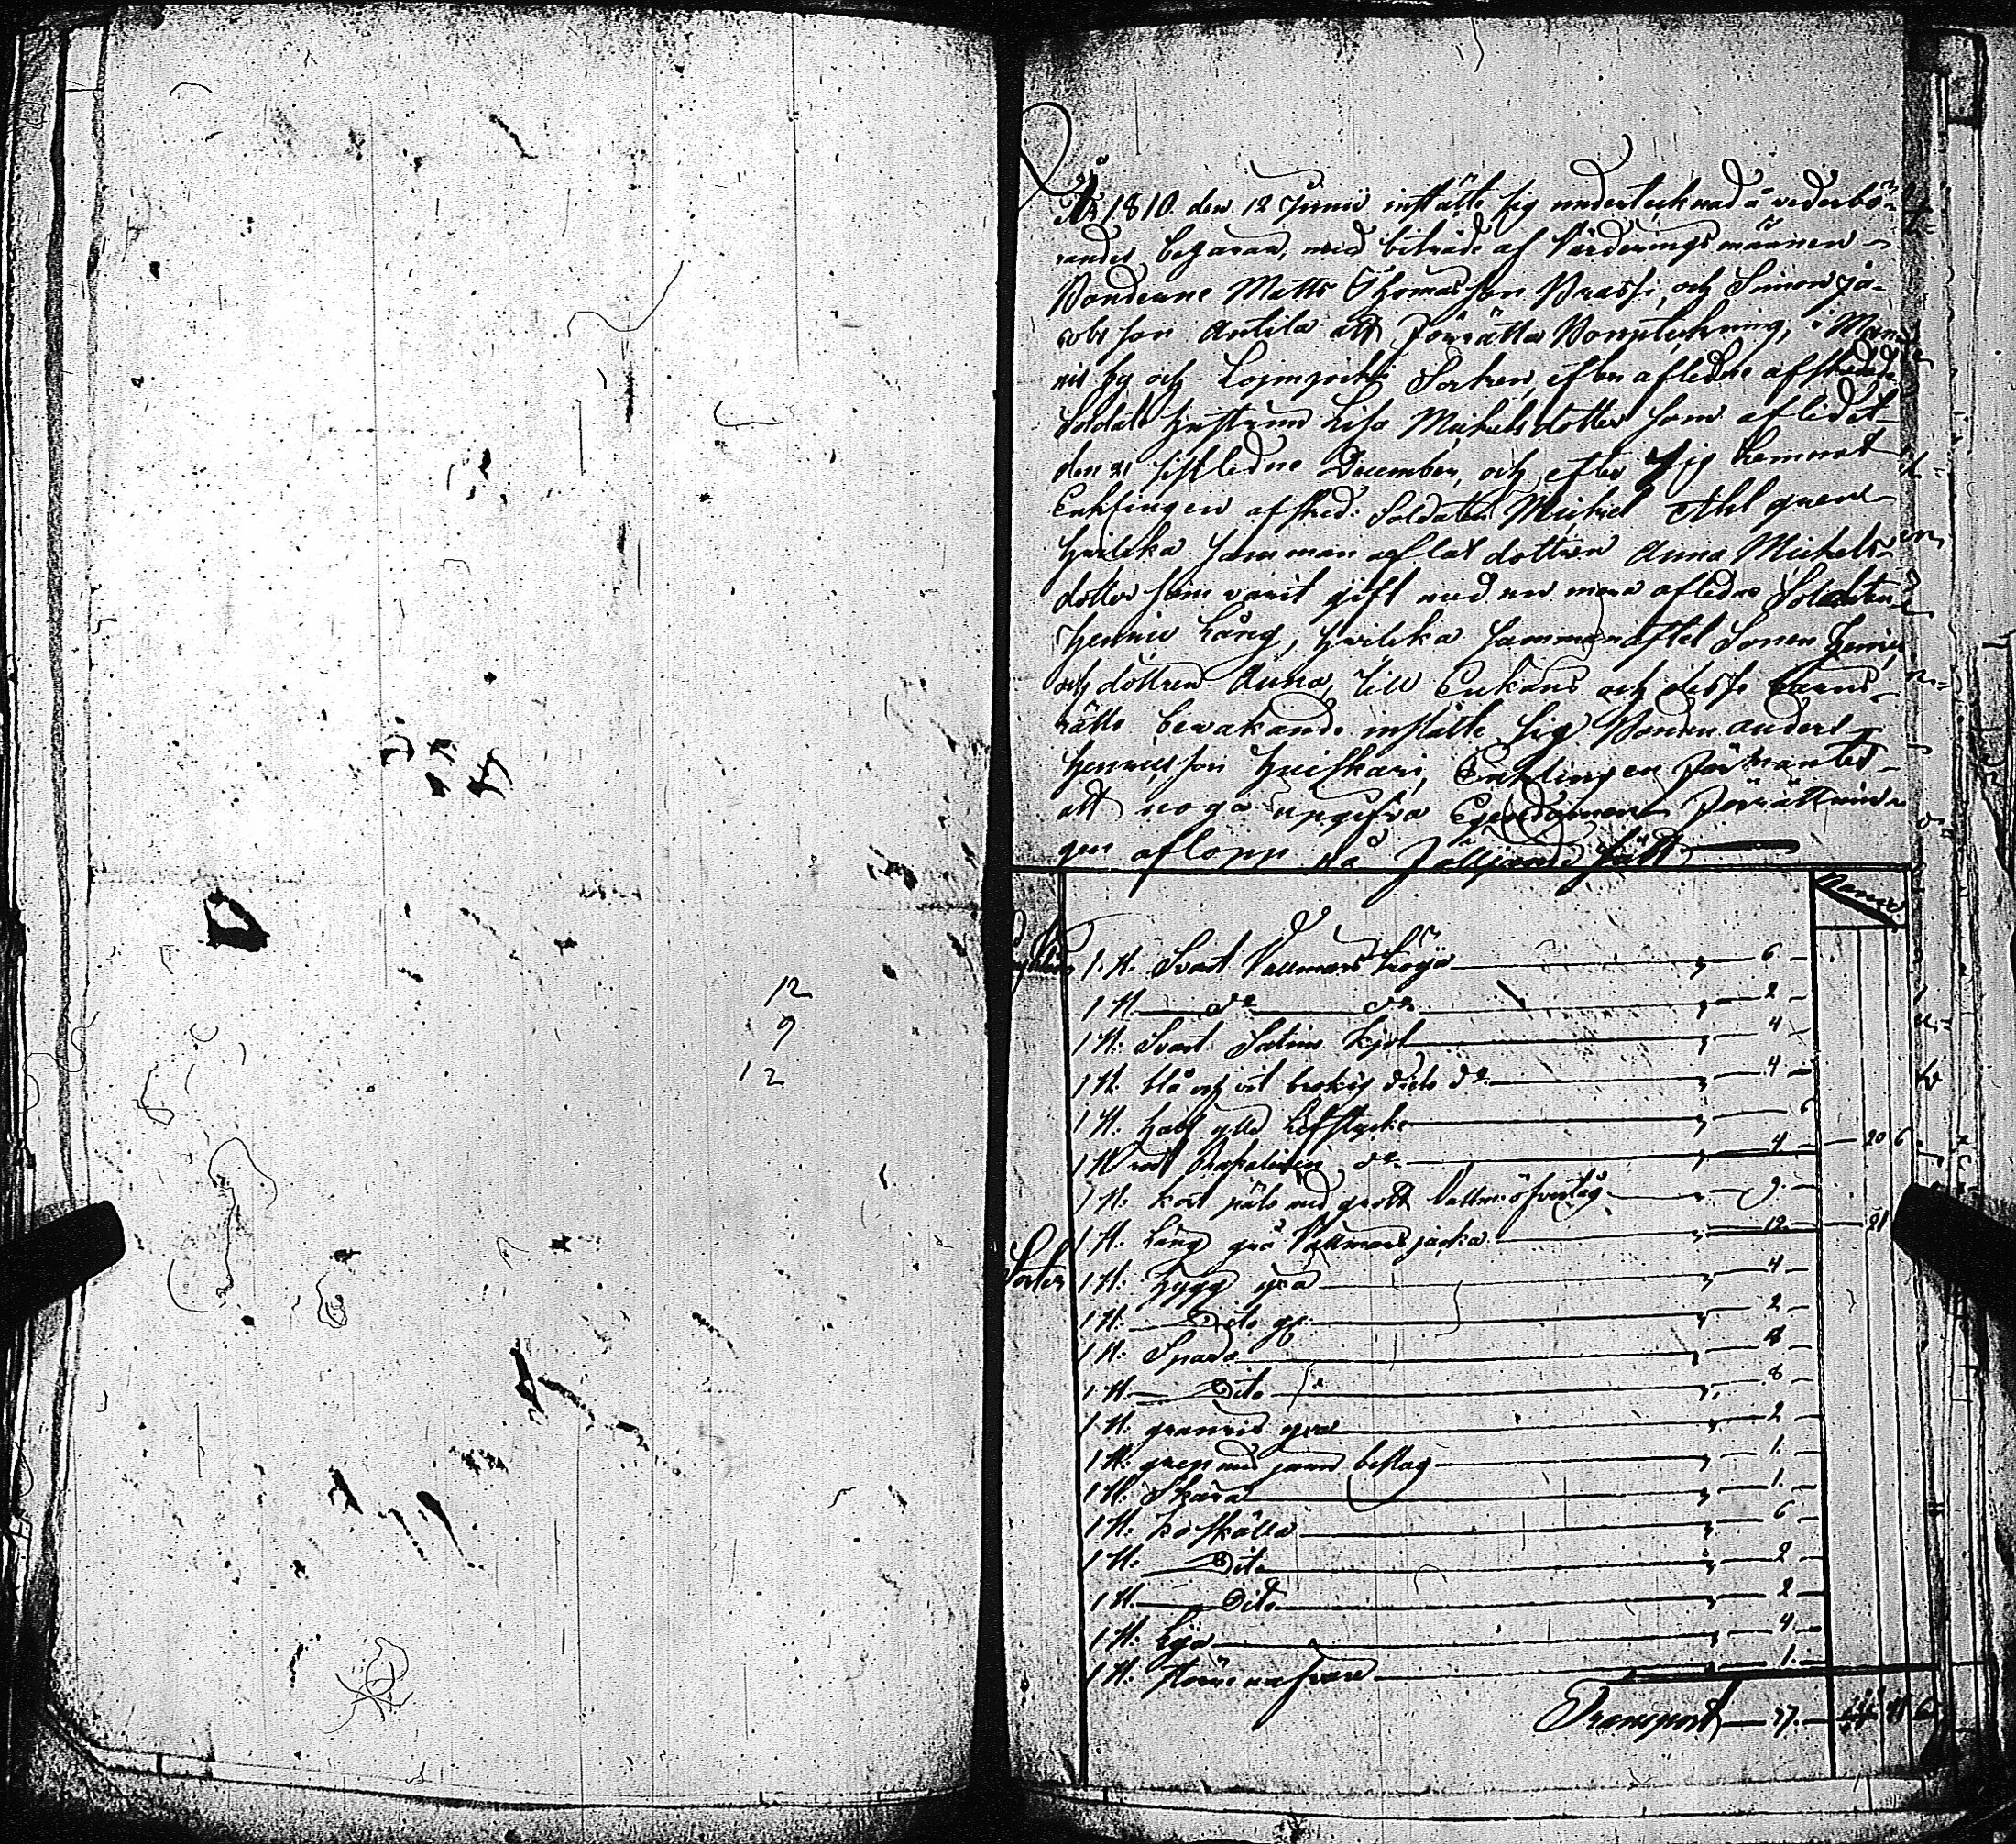 12
9
12
År 1810. den 12 Junii instälte sig undertecknad å vederbö-
randes begäran, med biträde af Värderings männen
Bonderne Matts Thomasson Prassi, och Simon Ja-
cobsson Antila att förrätta Bouptekning, i
by och Loimjocki Sorken, efter aflidne afskedade
Soldats hustrun Lisa Mickelsdotter som aflidit
den 21 sistledne December, och efter sig lemnat
Enklingen afsked: Soldaten Mickel Ahlgren
hvilcka samman aflat dottren Anna Mickels-
dotter som varit gift med nu mera aflidne Soldaten
Henric Lång, hvilcka samman aflat Sonen Henric
och dottren Anna, till Enkans och desse barns
rätts bevakande instälte sig Bonden Anders
Henricsson Huiskari, Enklingen förmantes
att noga upgifva Egendomen Förrättnin-
gen aflopp på följande sätt
1 st. Svart Vallmars tröja 6
1 st. do do 2
1 st. Svart Satins kjol 4
1 st. blå och vit brokig dito do 4
1 st. half ylle lifstycke 6
1 st. röd do 4 20 6
1 st. kort päls med grått Vallm: öfvertåg 9
1 st. Lång grå Vallmars jacka 12 21
1 st. hygg yxa 4
1 st. Dito gl: 2
1 st. Spada 8
1 st. Dito 8
1 st. granris yxa 2
1 st. grep med järn beslag 1
1 st. Skära 1
1 st. ko skälla 6
1 st. Dito 2
1 st. Dito 2
1 st. Lija 4
1 st. 1
Transport 37